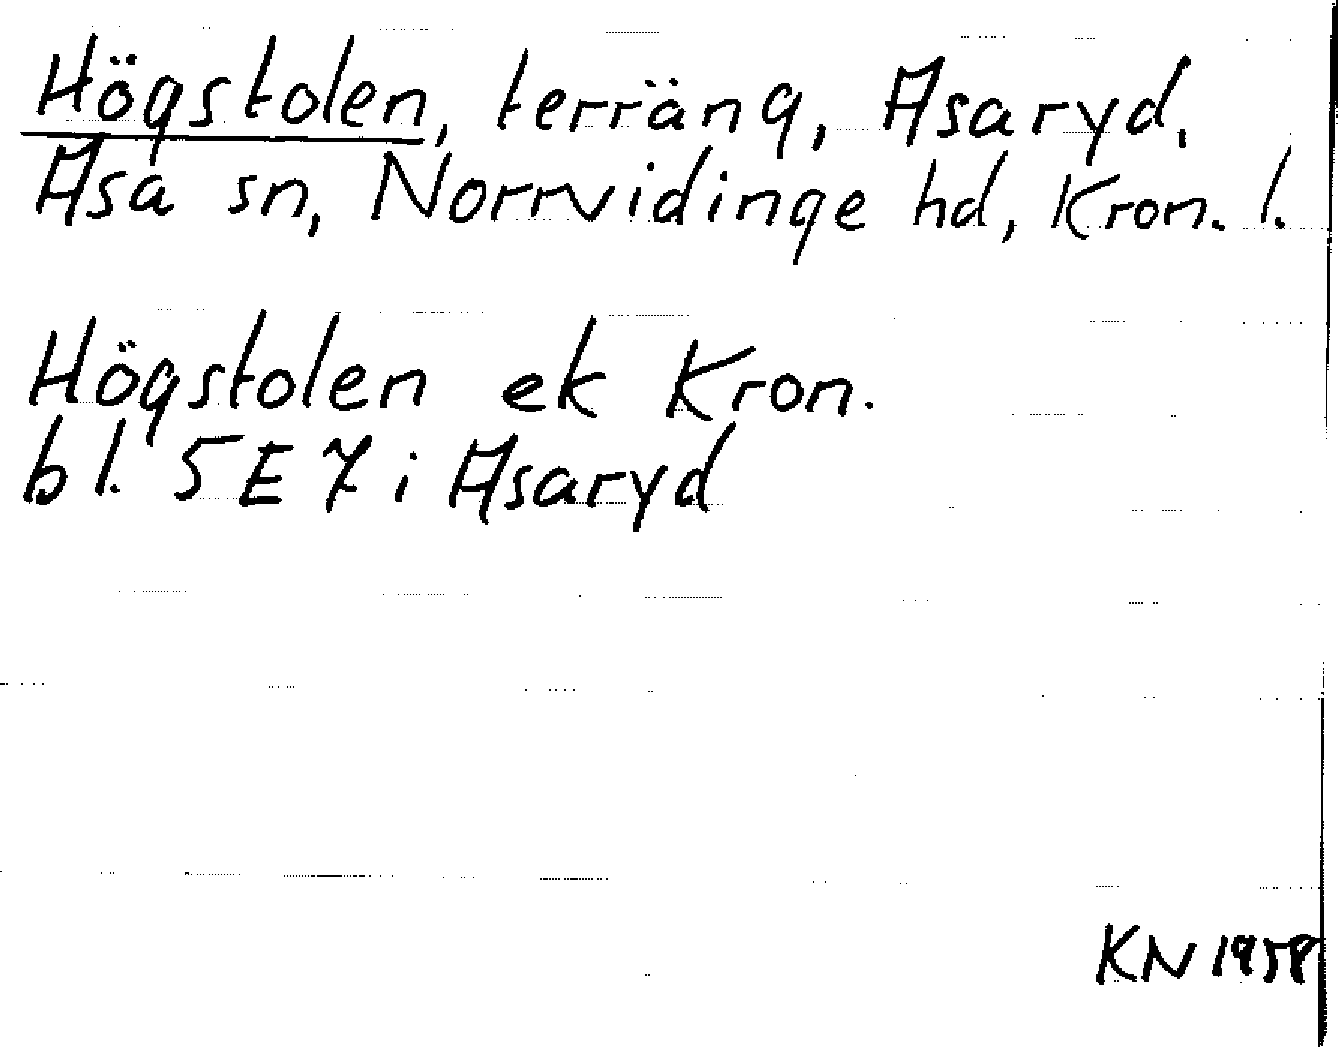 Högstolen, terräng, Asaryd,
Asa sn, Norrvidinge hd, Kron. l.
Högstolen ek Kron.
bl. 5E7 i Asaryd
KN 1958